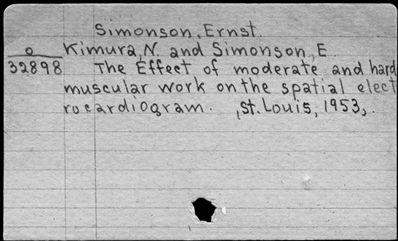 Simonson, Ernst.
o Kimura, N. and Simonson, E.
32898 The Effect of moderate and hard
muscular work on the spatial elect
rocardiogram. , St. Louis, 1953,.